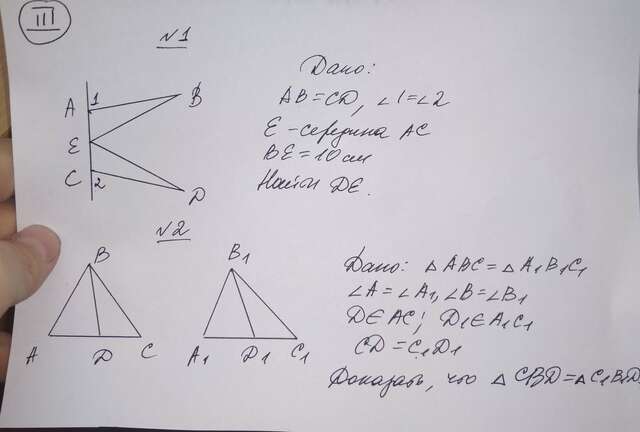 III
№1
Дано:
AB = CD, ∠1 = ∠2
E - середина AC
BE = 10 см
Найти DE.
A 1 B
E
C 2 D
№2
B B1
A D C A1 D1 C1
Дано: △ABC = △A1B1C1
∠A = ∠A1, ∠B = ∠B1
D∈AC; D1∈A1C1
CD = C1D1
Доказать, что △CBD = △C1B1D